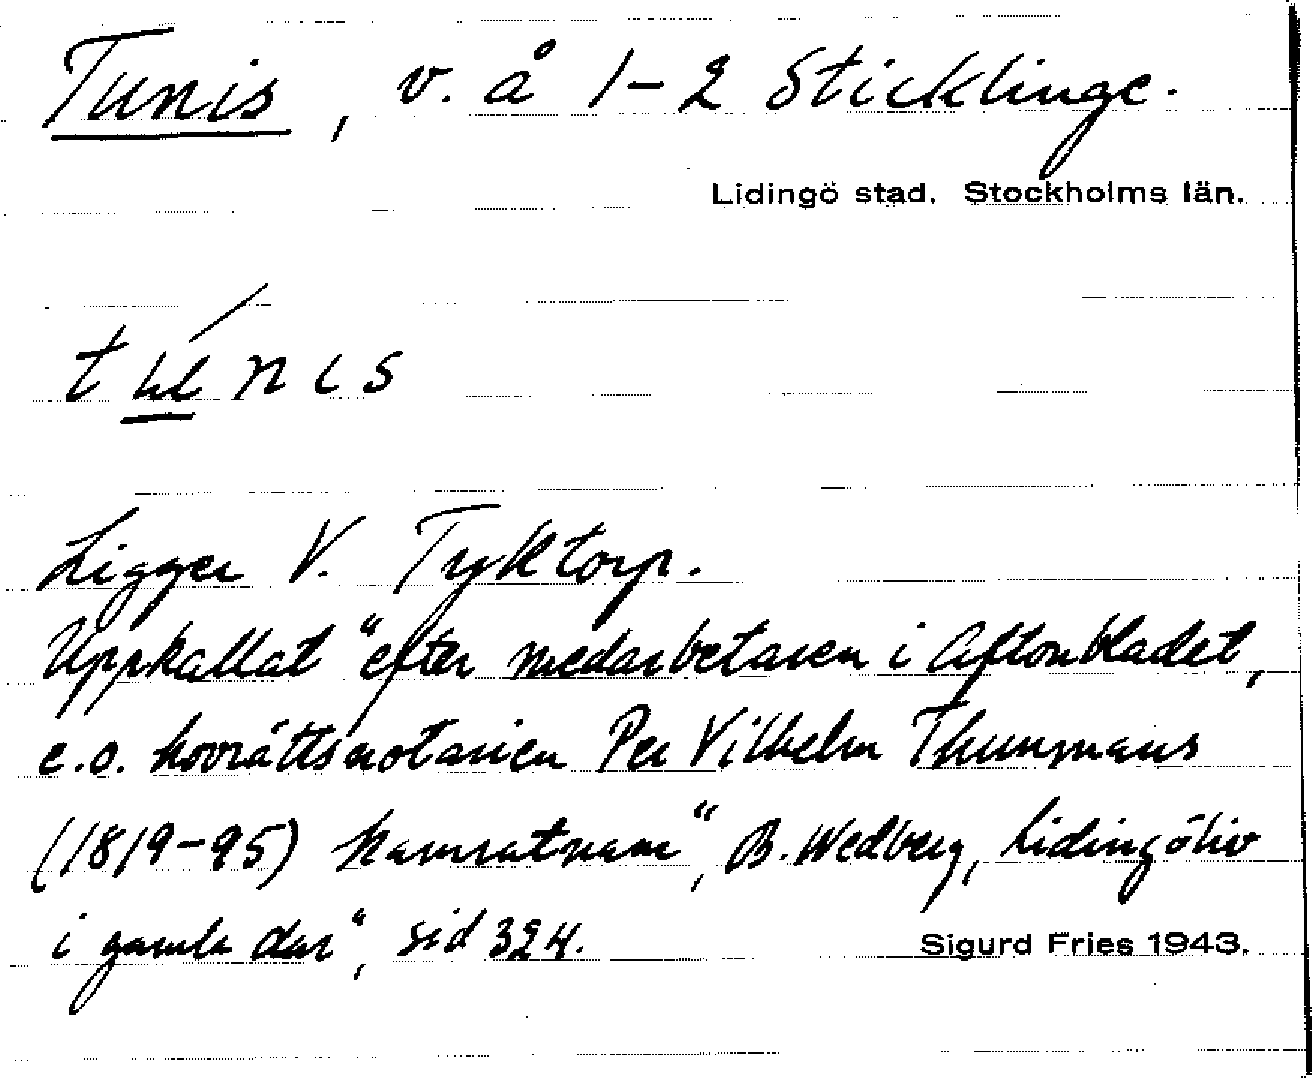 Tunis, v. å 1-2 Sticklinge.
Lidingö stad. Stockholms län.
t ú n i s
Ligger V. Tyktorp.
Uppkallat "efter medarbetaren i Aftonbladet,
e.o. hovrättsnotarien Per Vilhelm Thunmans
(1819-95) kamratnamn", B. Wedberg, Lidingöliv
i gamla dar", sid 324.
Sigurd Fries 1943.